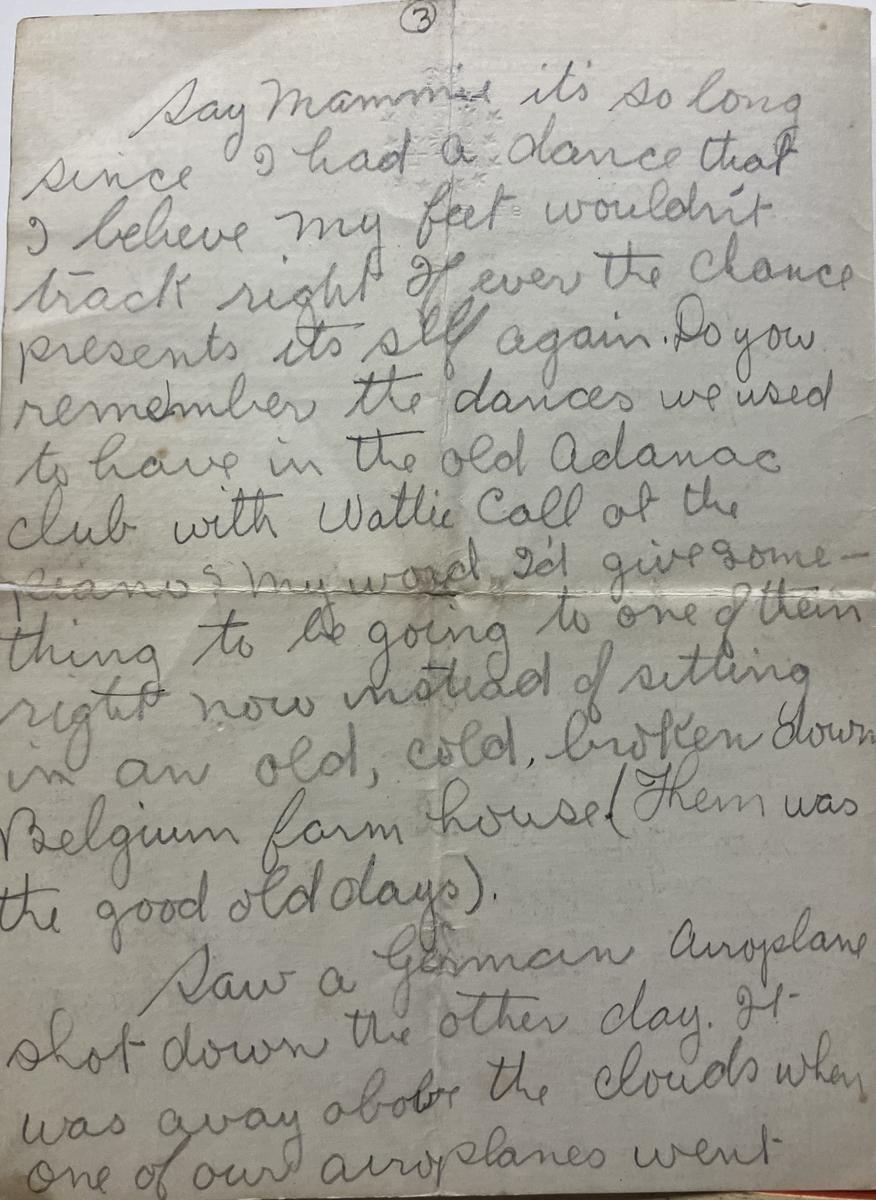 ③
Say Mammie it's so long
since I had a dance that
I believe my feet wouldn't
track right If ever the chance
presents its self again. Do you
remember the dances we used
to have in the old Adanac
club with Wattie Call at the
piano? My word I'd give some-
thing to be going to one of them
right now instead of setting
in an old, cold, broken down
Belgium farm house (Them was
the good old days).
Saw a German airoplane
shot down the other day. It
was away above the clouds when
one of our airoplanes went